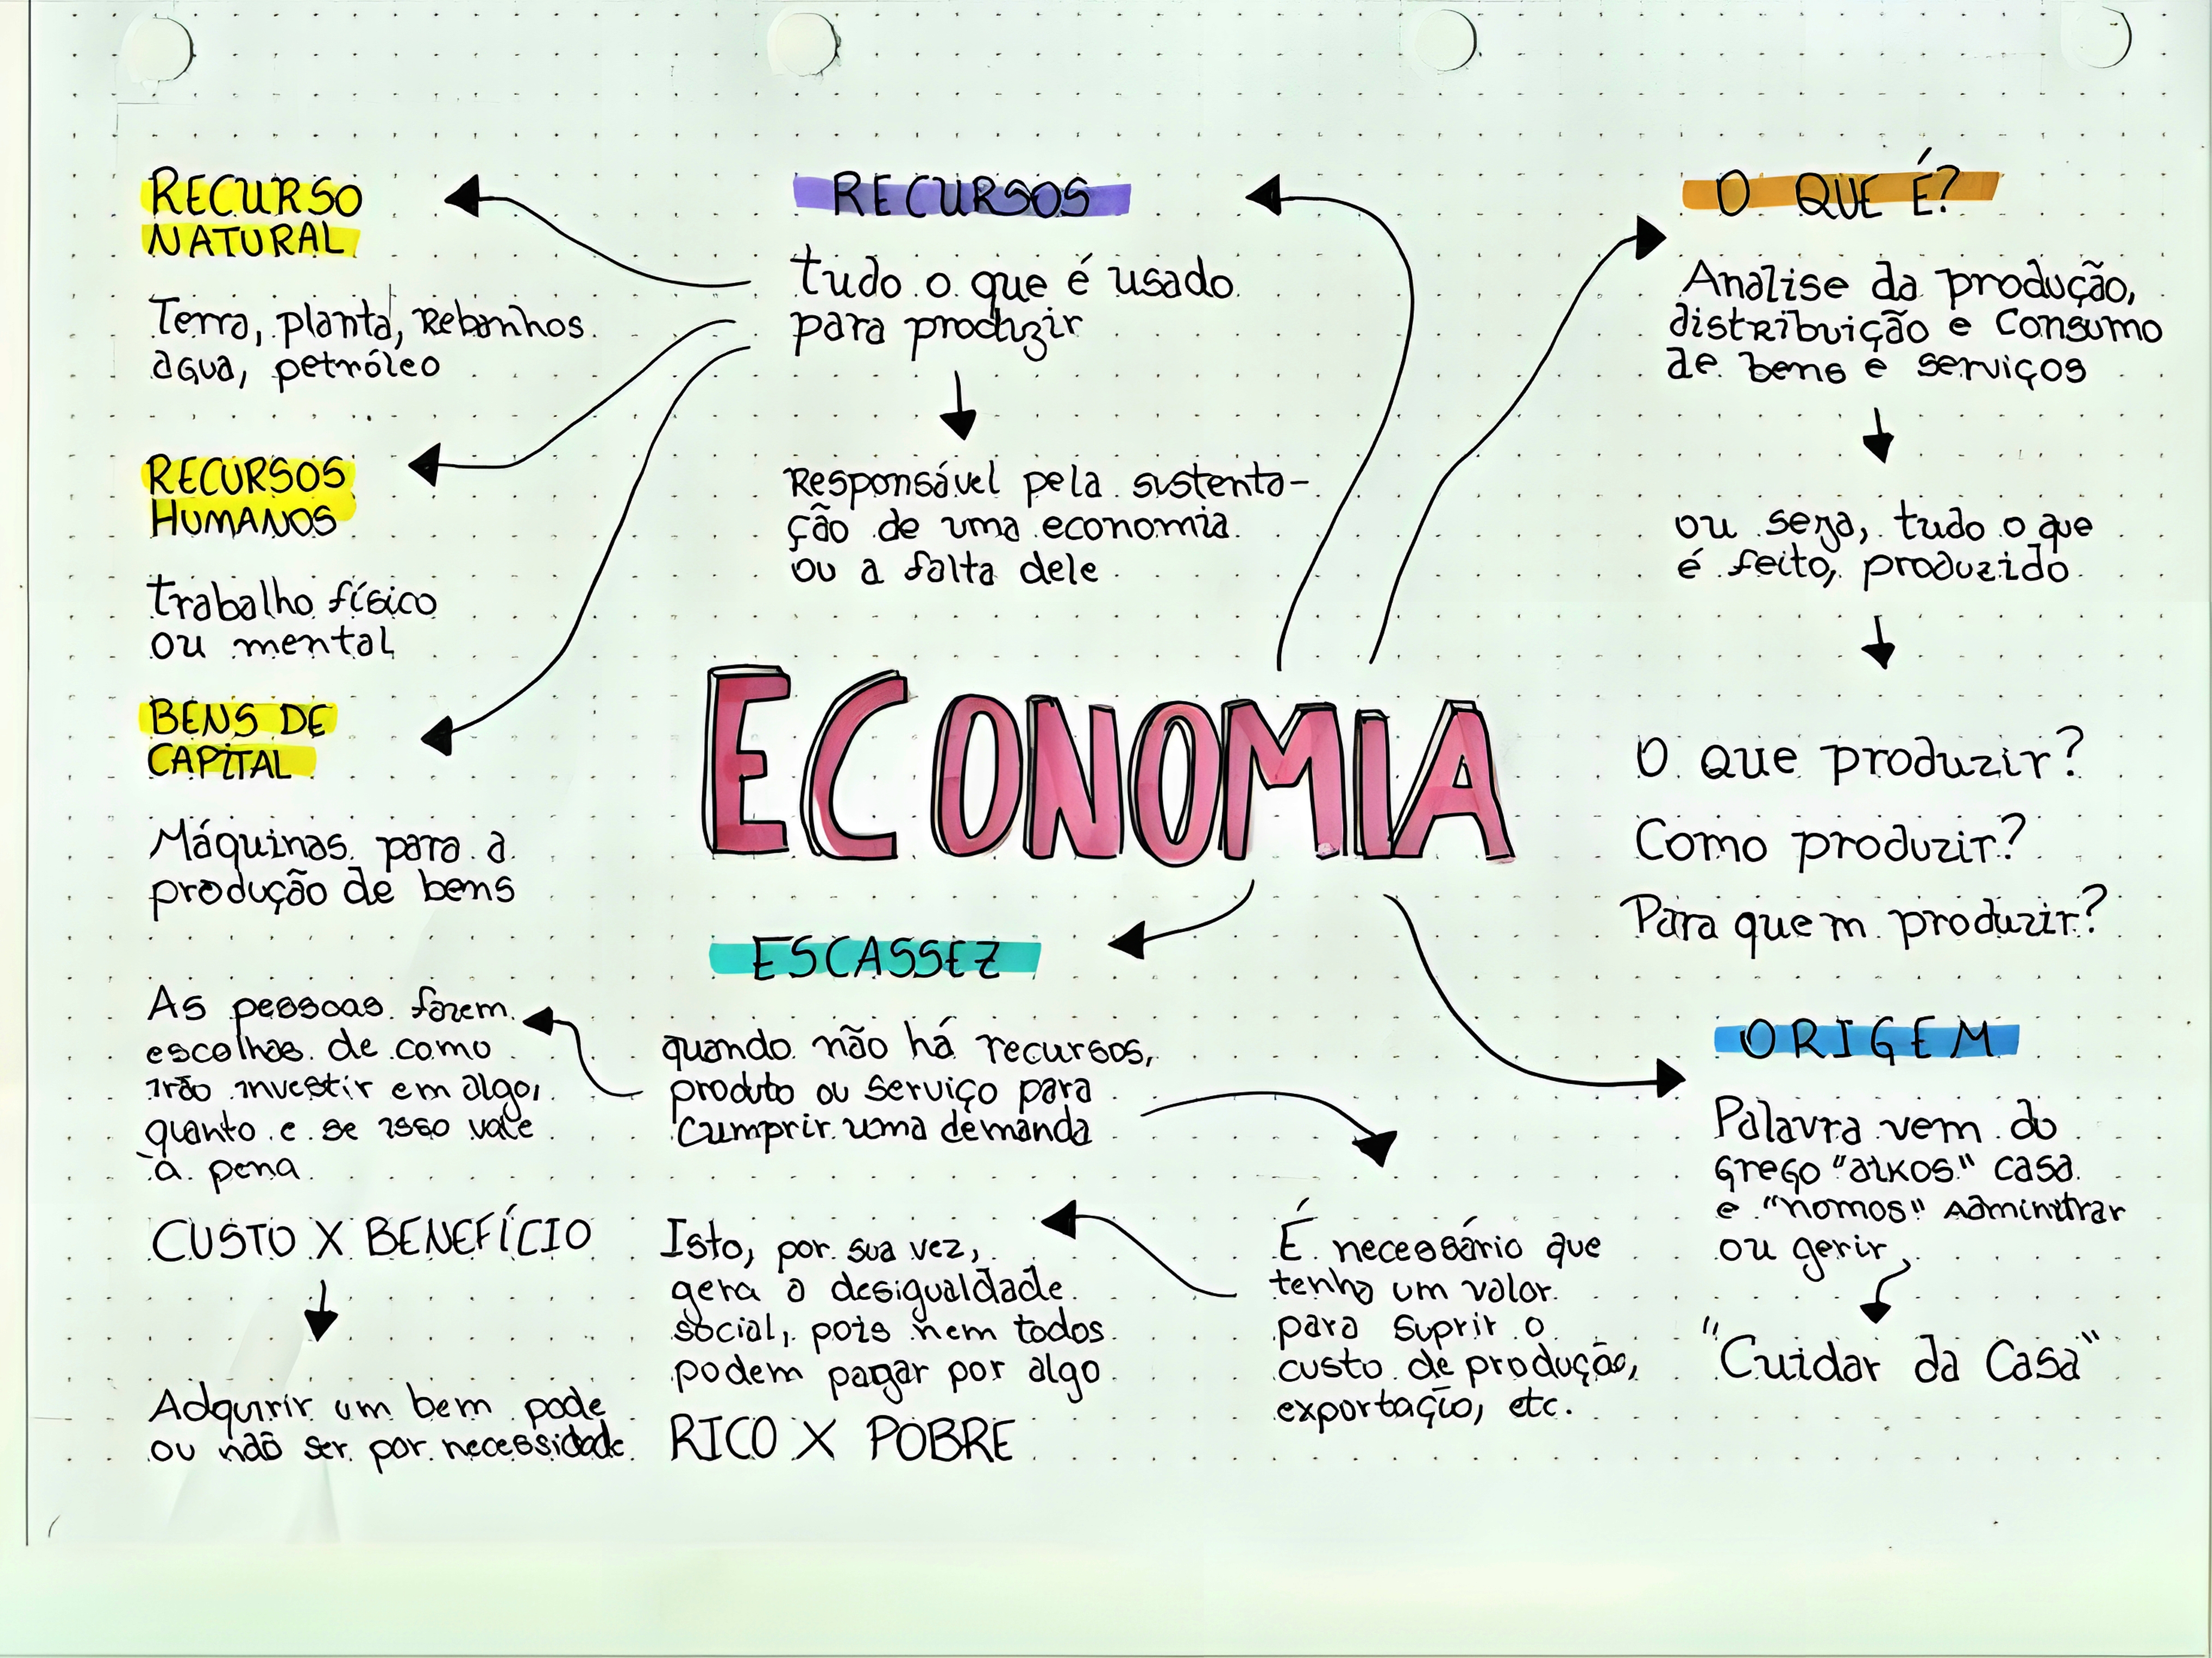 RECURSO
NATURAL
Terra, planta, Rebanhos
água, petróleo
RECURSOS
HUMANOS
trabalho físico
ou mental
BENS DE
CAPITAL
Máquinas para a
produção de bens
RECURSOS
tudo o que é usado
para produzir
Responsável pela sustenta-
ção de uma economia
ou a falta dele
O QUE É?
Analise da produção,
distribuição e Consumo
de bens e serviços
ou seja, tudo o que
é feito, produzido
O que produzir?
Como produzir?
Para quem produzir?
ECONOMIA
ESCASSEZ
quando não há recursos,
produto ou serviço para
Cumprir uma demanda
As pessoas fazem
escolhas de como
irão investir em algo,
quanto e se isso vale
à pena
CUSTO X BENEFÍCIO
Adquirir um bem pode
ou não ser por necessidade
É necessário que
tenha um valor
para suprir o
custo de produção,
exportação, etc.
Isto, por sua vez,
gera a desigualdade
social, pois nem todos
podem pagar por algo
RICO X POBRE
ORIGEM
Palavra vem do
Grego "oikos" casa
e "nomos" Admintrar
ou gerir
"Cuidar da Casa"